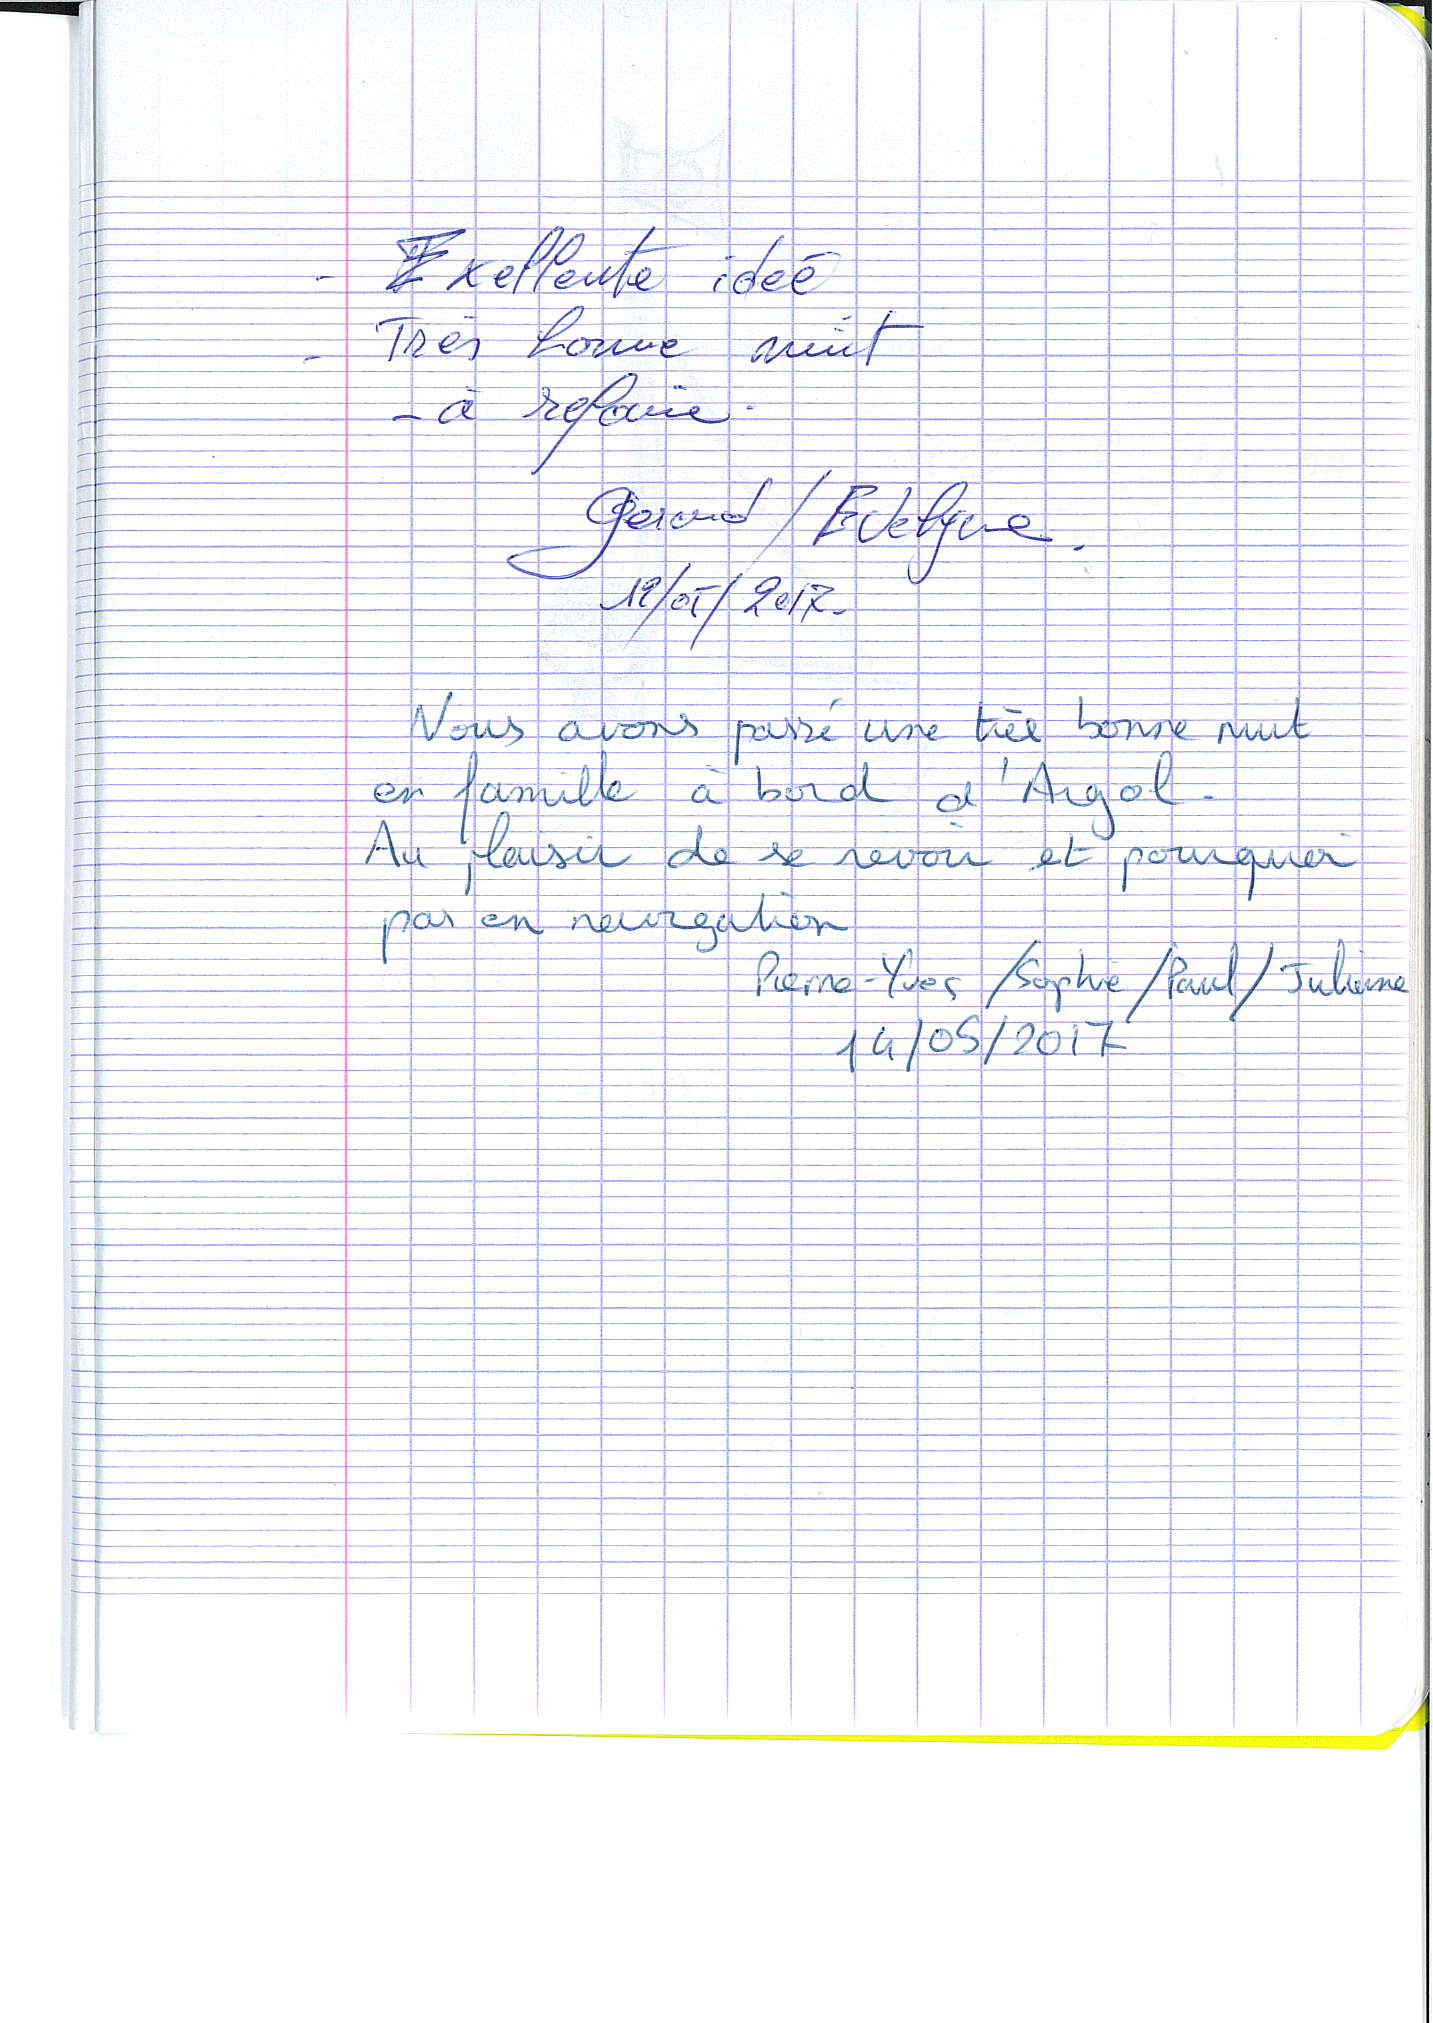 - Exellente ideé
- Très bonne nuit
- à refaire.
Gerard / Evelyne.
12/05/2017-
Nous avons passé une très bonne nuit
en famille à bord d'Argol.
Au plaisir de se revoir et pourquoi
pas en navigation
Pierre-Yves / Sophie / Paul / Julienne
14/05/2017